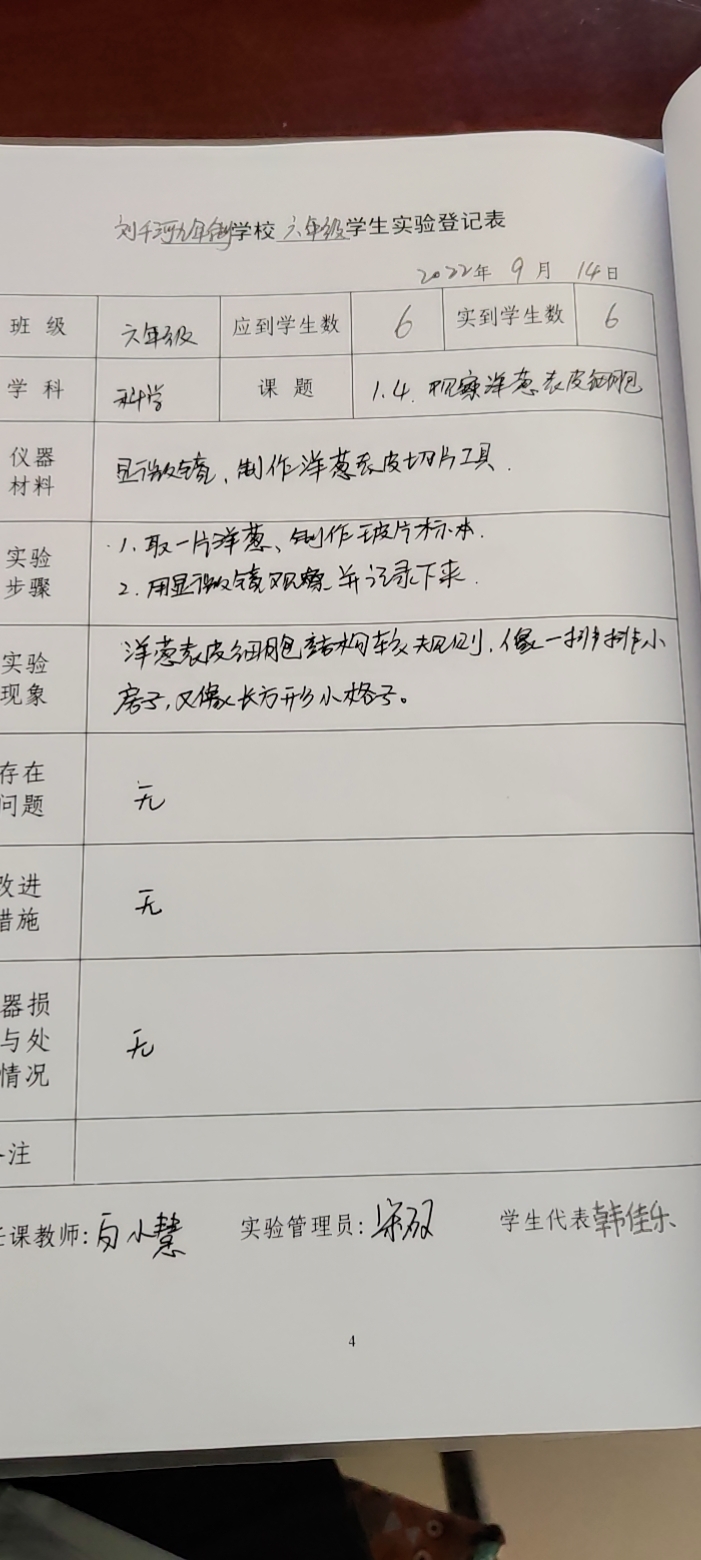 刘千河九年制学校 六年级学生实验登记表
2022年 9 月 14日
班 级 六年级 应到学生数 6 实到学生数 6
学 科 科学 课 题 1.4. 观察洋葱表皮细胞
仪器
材料
显微镜、制作洋葱表皮切片工具.
实验
步骤
1. 取一片洋葱、制作玻片标本.
2. 用显微镜观察并记录下来.
实验
现象
洋葱表皮细胞结构较规则,像一排排小
房子,又像长方形小格子。
存在
问题
无
改进
措施
无
器损
与处
情况
无
注
课教师:白小慧 实验管理员:梁双 学生代表韩佳乐
4